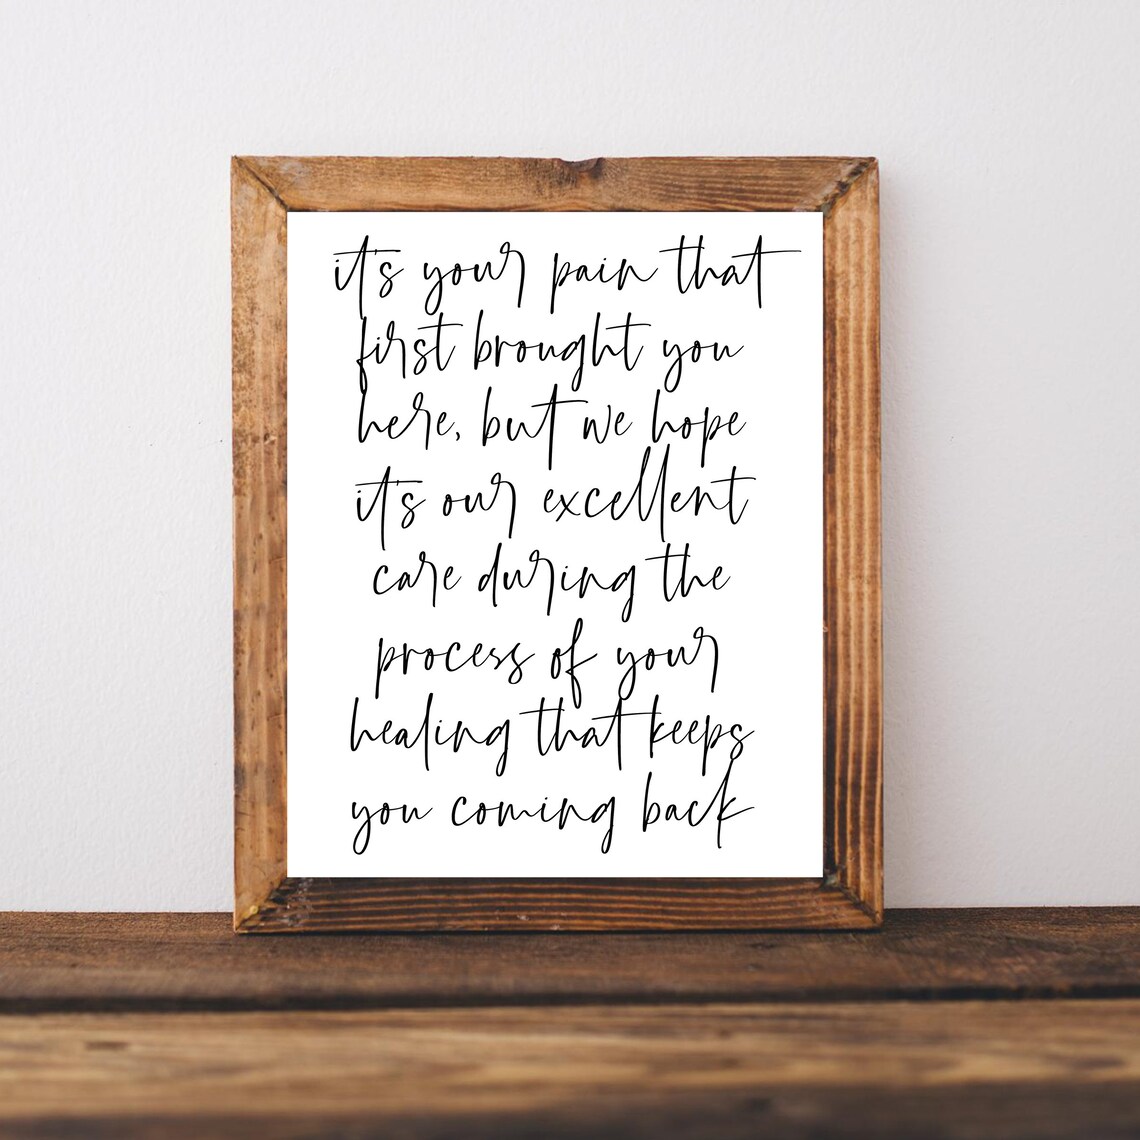 it's your pain that
first brought you
here, but we hope
it's our excellent
care during the
process of your
healing that keeps
you coming back